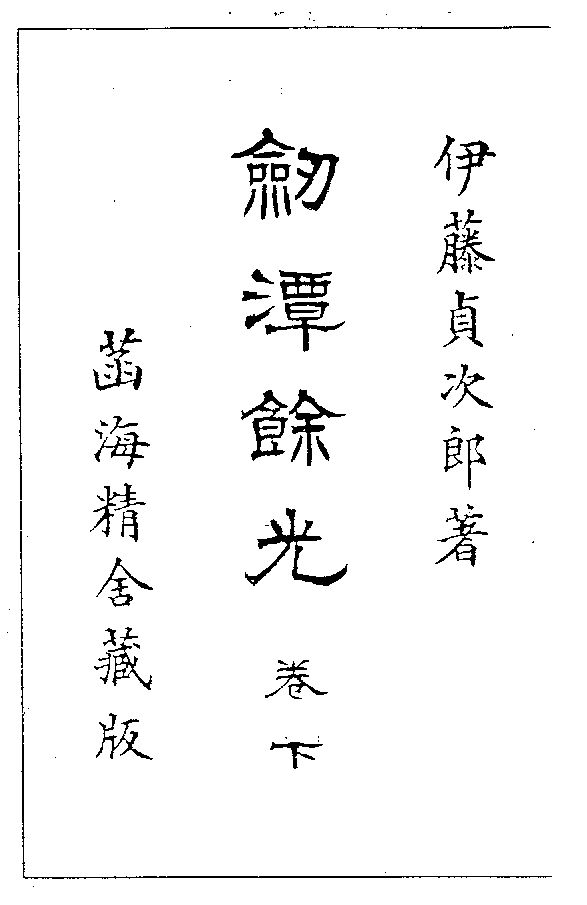 伊藤貞次郎著
劒潭餘光 卷下
菡海精舍藏版